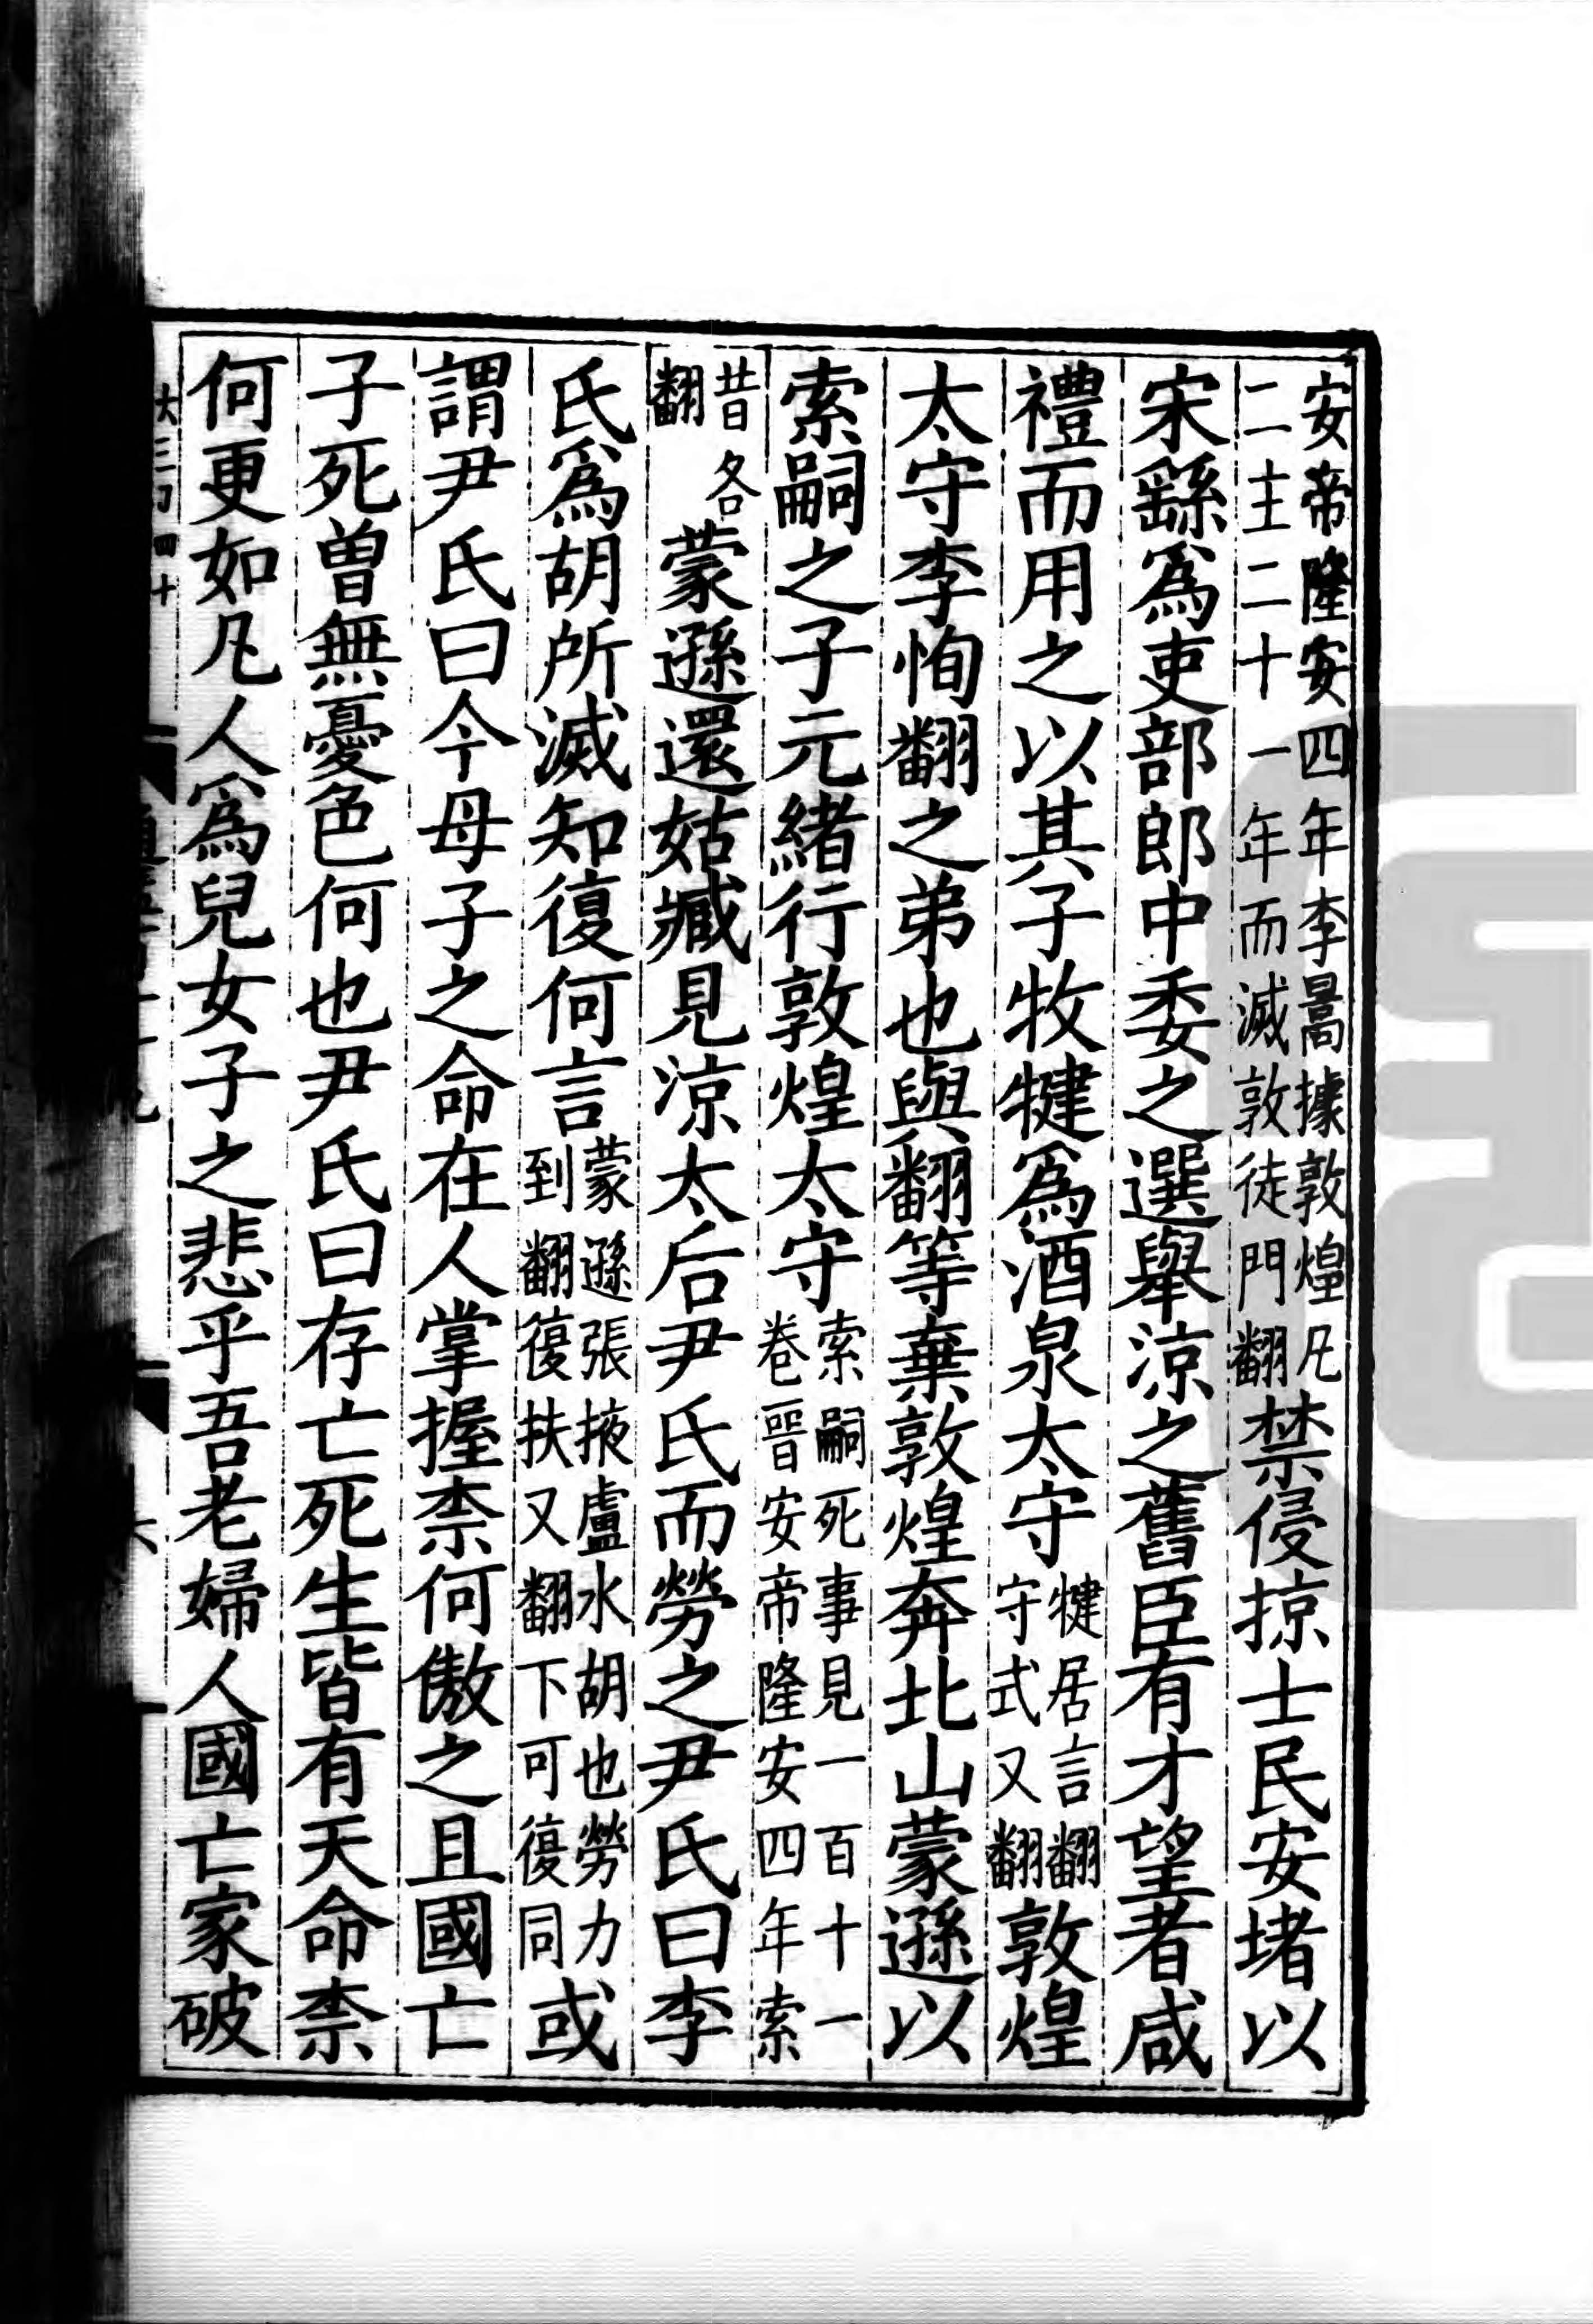 安帝隆安四年李暠據敦煌凡二主二十一年而滅敦徒門翻禁侵掠士民安堵以
宋繇爲吏部郎中委之選舉涼之舊臣有才望者咸
禮而用之以其子牧犍爲酒泉太守犍居言翻守式又翻敦煌
太守李恂翻之弟也與翻等棄敦煌奔北山蒙遜以
索嗣之子元緒行敦煌太守索嗣死事見一百十一卷晉安帝隆安四年索
昔各翻蒙遜還姑臧見涼太后尹氏而勞之尹氏曰李
氏爲胡所滅知復何言蒙遜張掖盧水胡也勞力到翻復扶又翻下可復同或
謂尹氏曰今母子之命在人掌握柰何傲之且國亡
子死曾無憂色何也尹氏曰存亡死生皆有天命柰
何更如凡人爲兒女子之悲乎吾老婦人國亡家破